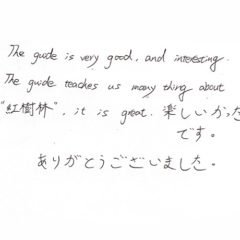 The guide is very good, and interesting.
The guide teaches us many thing about
"紅樹林", it is great. 楽しいかった
です。
ありがとうございました。